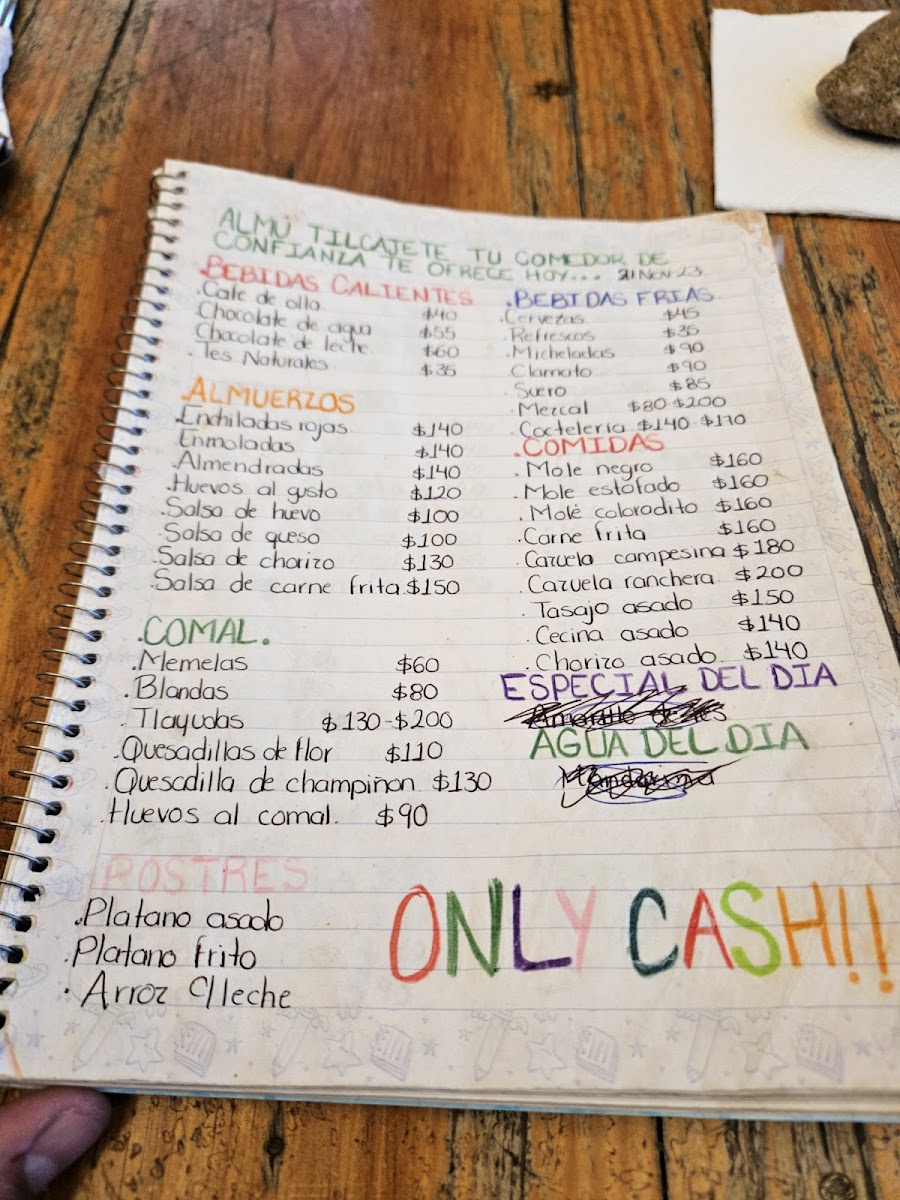 ALMÚ TILCAJETE TU COMEDOR DE
CONFIANZA TE OFRECE HOY... 21 NOV 23
BEBIDAS CALIENTES
.Cafe de olla $40
Chocolate de agua $55
Chocolate de leche. $60
.Tes Naturales $35
.ALMUERZOS
.Enchiladas rojas. $140
Enmoladas $140
.Almendradas $140
.Huevos al gusto $120
.Salsa de huevo $100
.Salsa de queso $100
.Salsa de chorizo $130
.Salsa de carne frita. $150
.COMAL.
.Memelas $60
.Blandas $80
.Tlayudas $130-$200
.Quesadillas de flor $110
.Quesadilla de champiñon $130
.Huevos al comal. $90
POSTRES
.Platano asado
.Platano frito
.Arroz c/leche
.BEBIDAS FRIAS.
.Cervezas $45
.Refrescos $35
.Micheladas $90
.Clamato $90
.Suero $85
.Mezcal $80-$200
.Coctelería $140-$170
.COMIDAS
.Mole negro $160
.Mole estofado $160
.Mole coloradito $160
.Carne frita $160
.Cazuela campesina $180
.Cazuela ranchera $200
.Tasajo asado $150
.Cecina asado $140
.Chorizo asado $140
ESPECIAL DEL DIA
AGUA DEL DIA
ONLY CASH!!